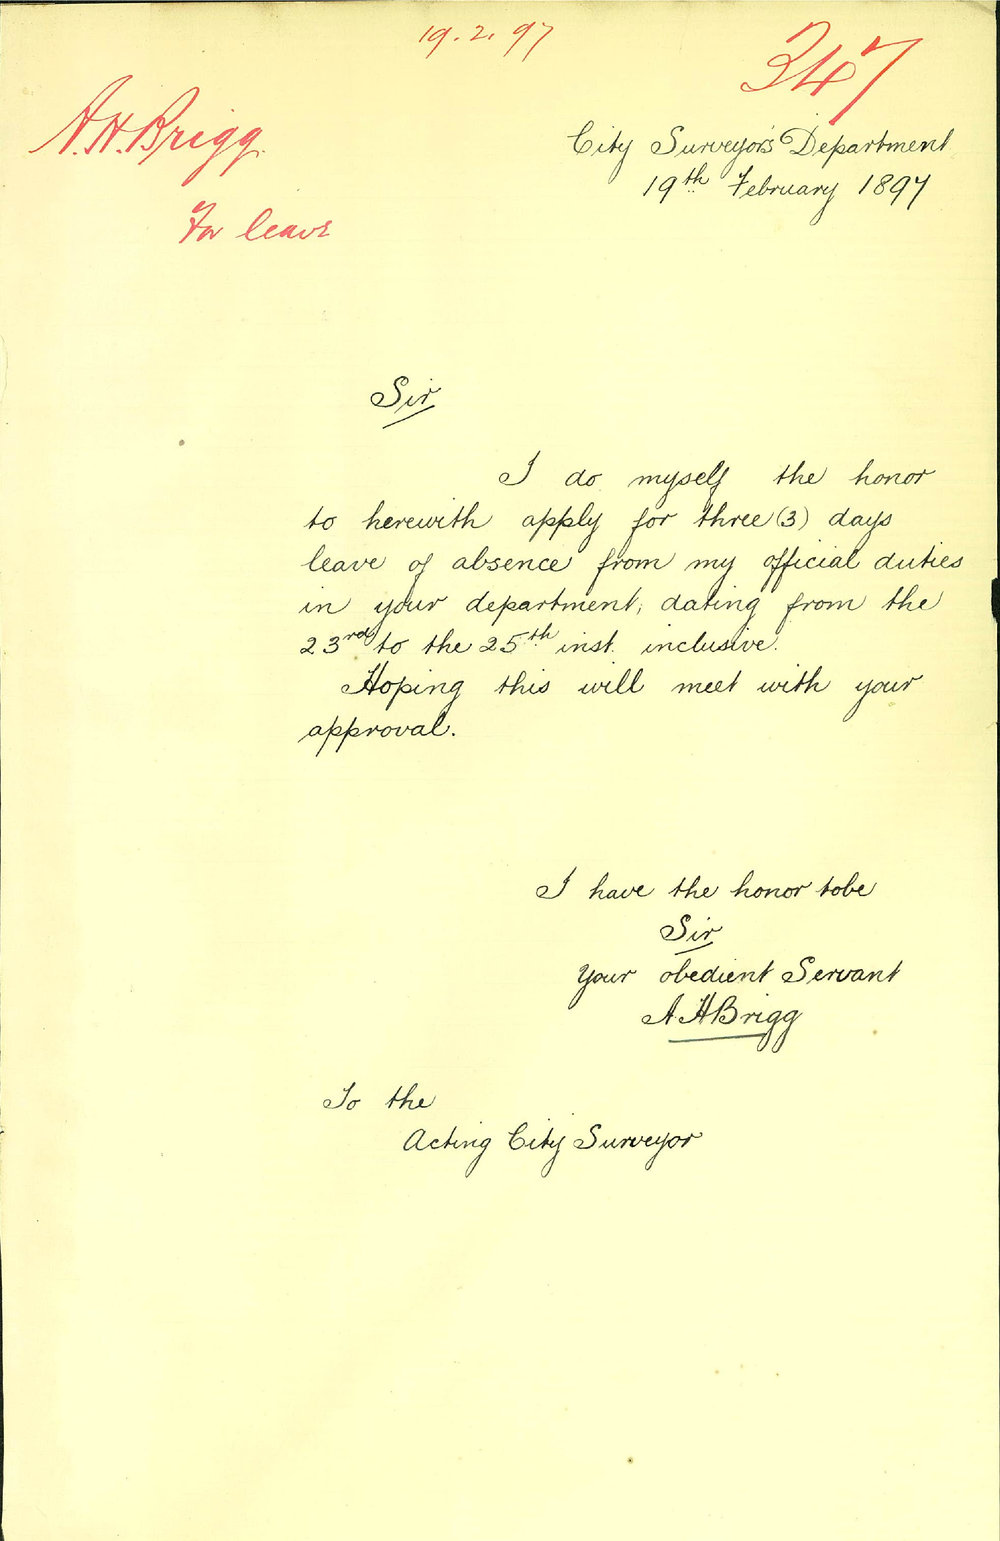 19.2.97
347
A.H.Brigg.
For leave
City Surveyor's Department
19th February 1897
Sir
I do myself the honor
to herewith apply for three (3) days
leave of absence from my official duties
in your department, dating from the
23rd to the 25th inst. inclusive.
Hoping this will meet with your
approval.
I have the honor tobe
Sir
Your obedient Servant
A.H Brigg
To the
Acting City Surveyor